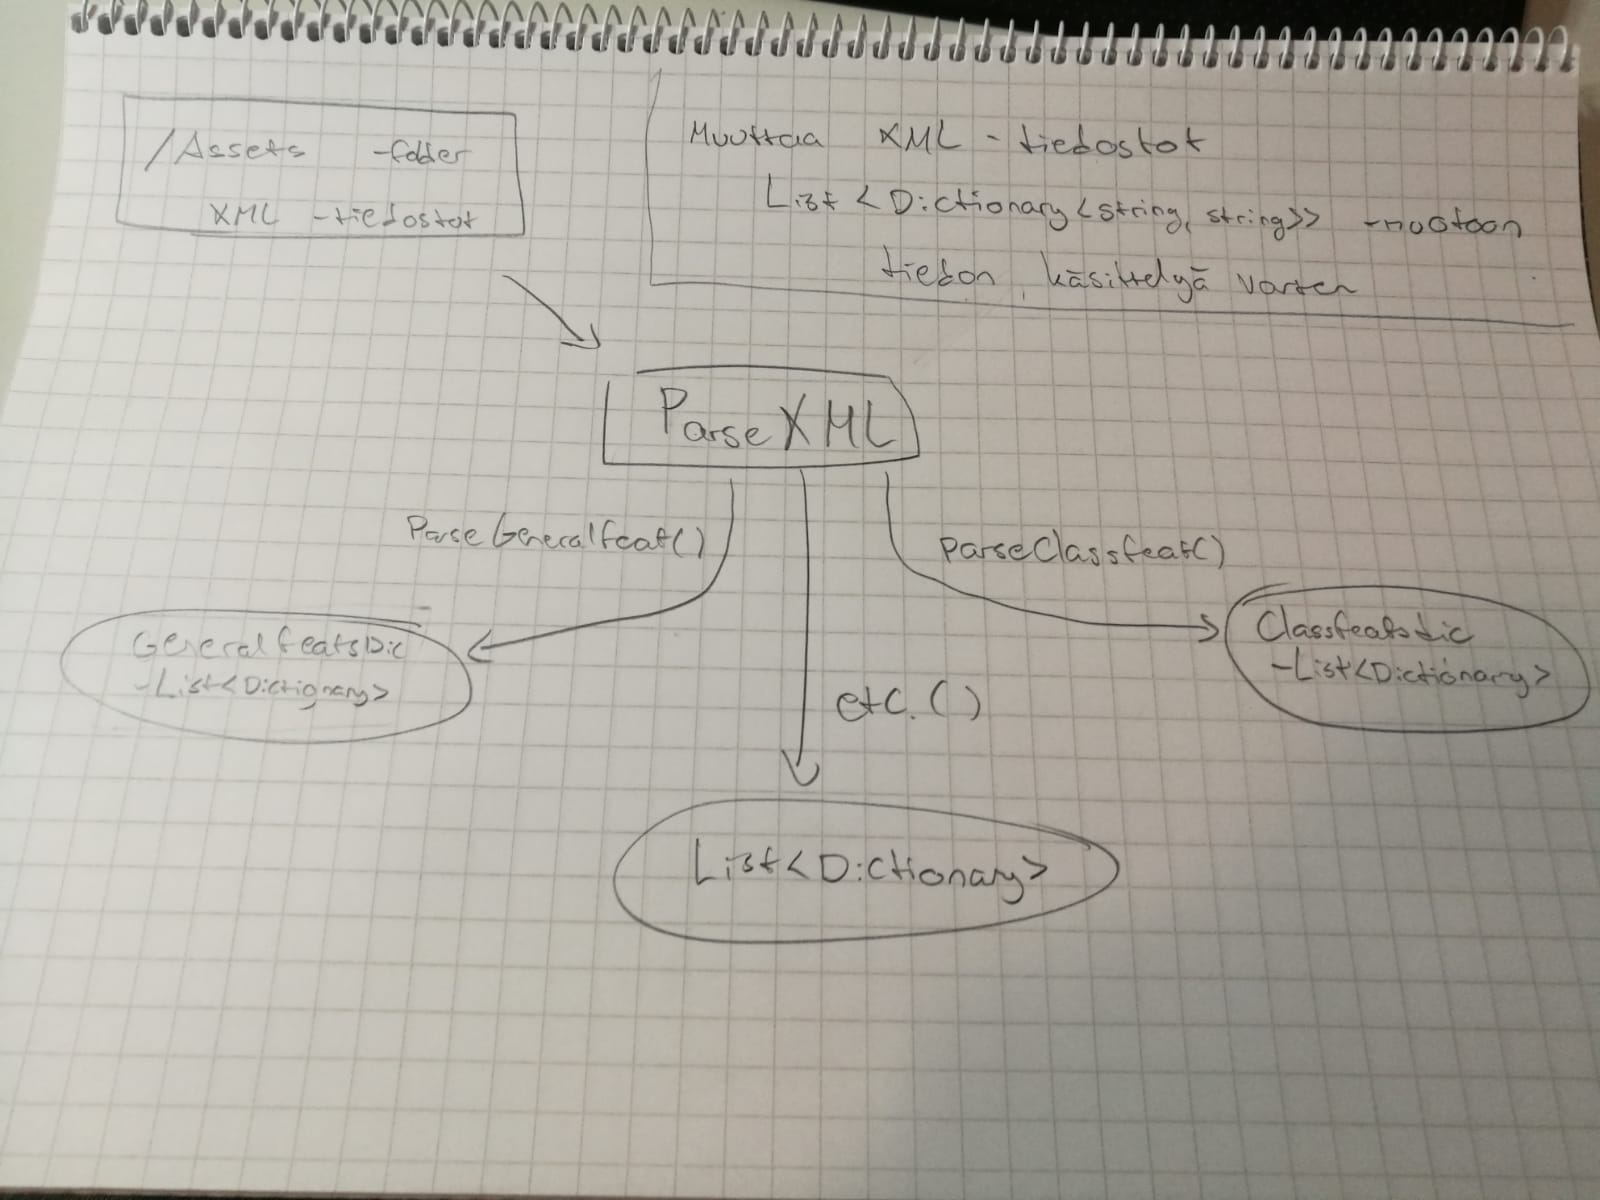 /Assets -folder
XML -tiedostot
Muuttaa XML -tiedostot
List<Dictionary<string, string>> -muotoon
tiedon käsittelyä varten
ParseXML
ParseGeneralfeat()
ParseClassfeat()
GeneralfeatsDic
-List<Dictionary>
Classfeatsdic
-List<Dictionary>
etc.()
List<Dictionary>